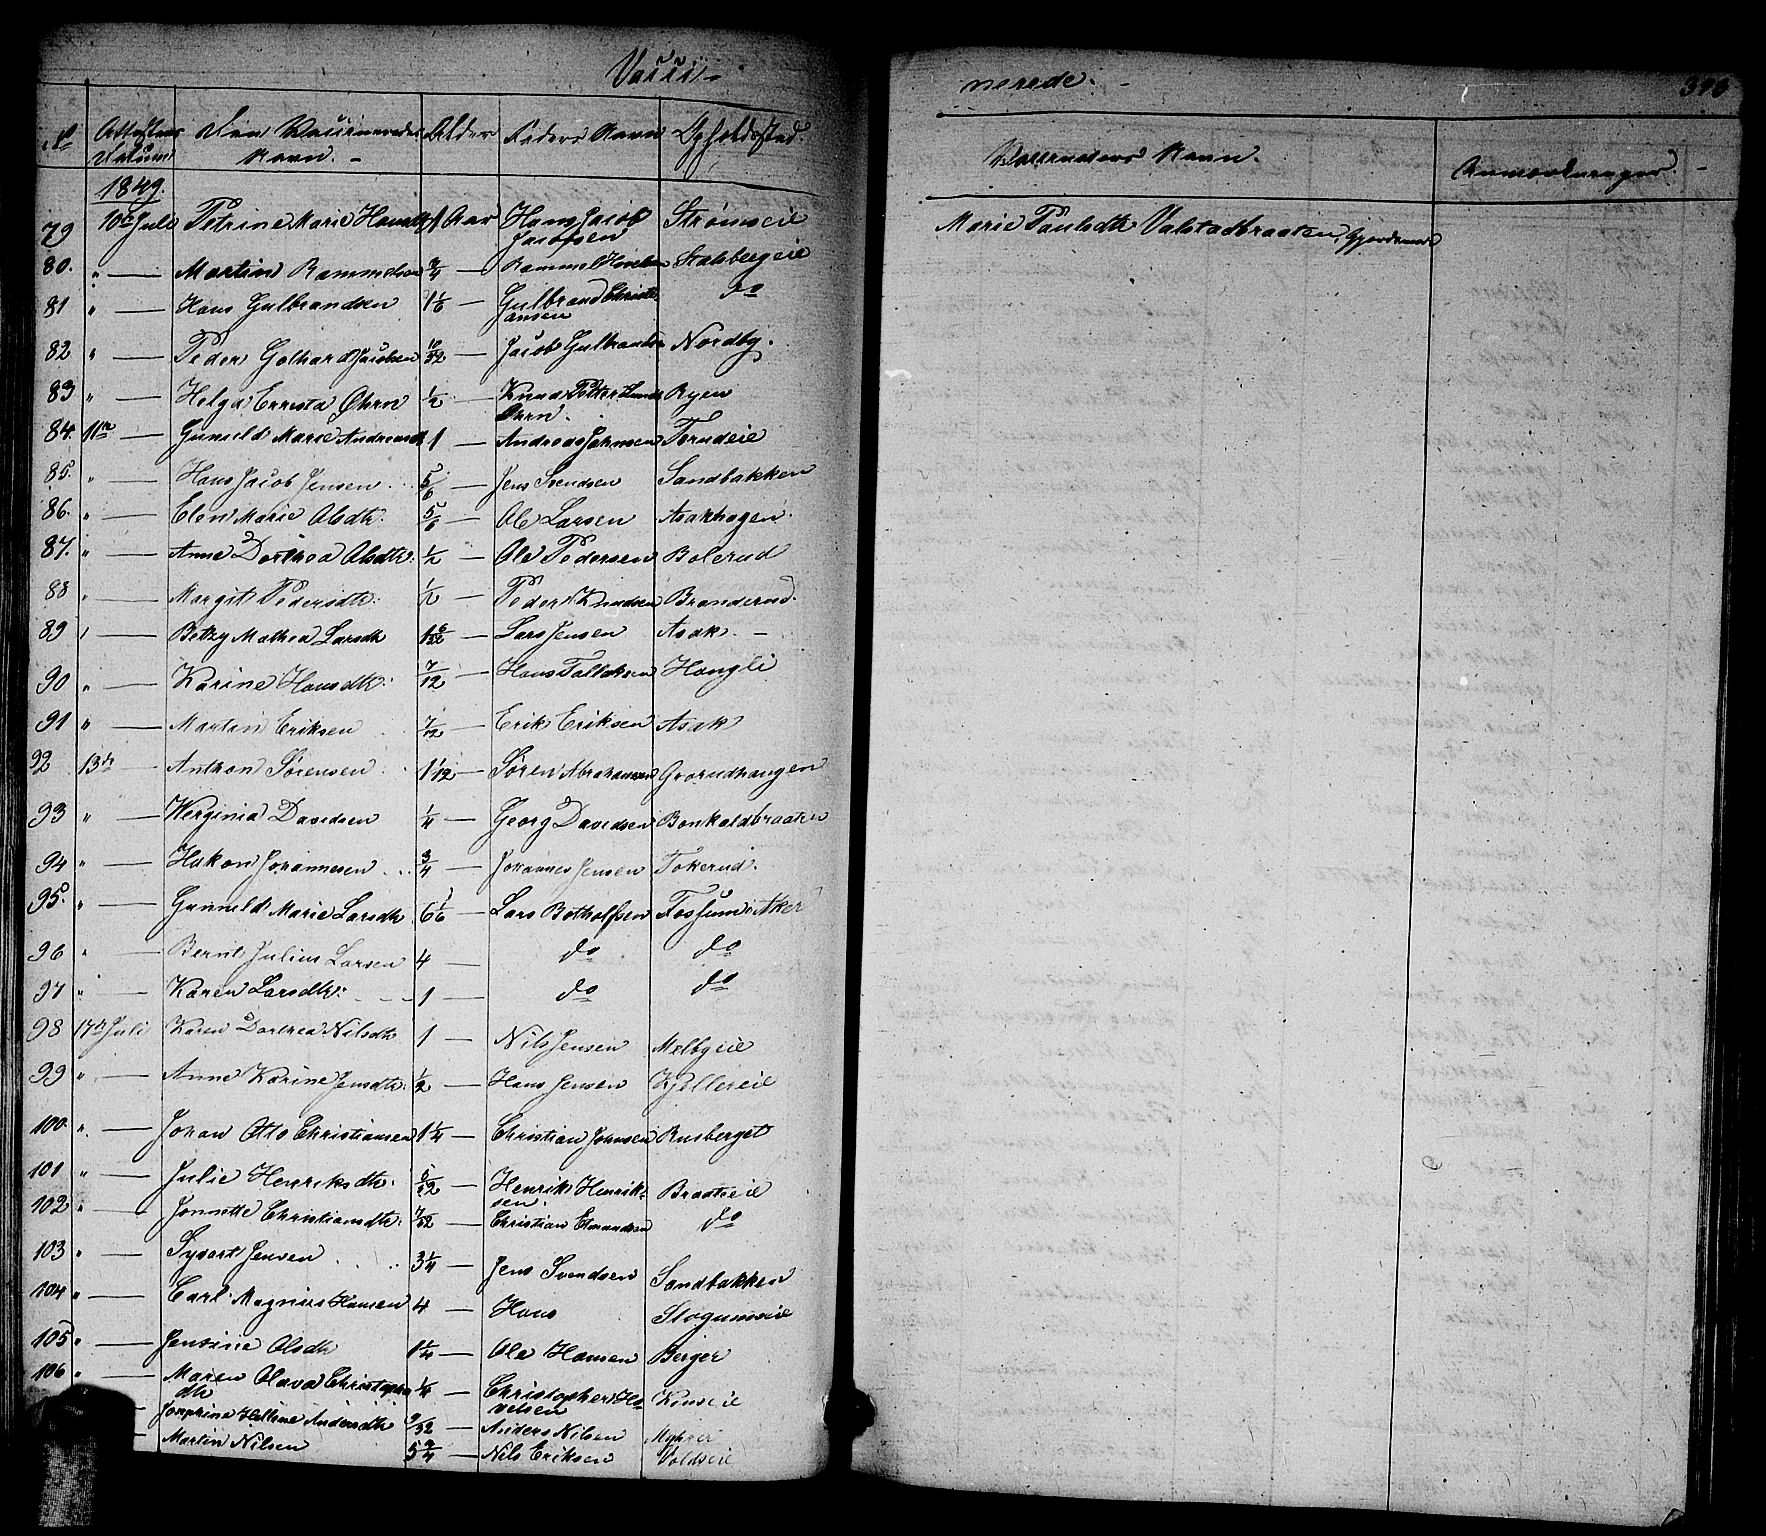 Vacci-
nerede.
No Attestens Datum Den Vaccineredes Navn. Alder Faders Navn Opholdssted.
Vaccinateurs Navn. Anmærkninger.
1849.
79 10de Juli Petrine Marie Hansdtr 1 Aar Hans Jacob Jacobsen Strømseie Marie Paulsdtr Valstadbraaten, Gjordemoder
80. " — Martin Rammelsen 3/4 — Rammel Stalsbergeie
81 " — Hans Gulbrandsen 1 1/6 — Gulbrand Christiansen do
82 " — Peder Gothard Jacobsen — Jacob Gulbrandsen Nordby.
83 " — Helga Ernsta Øhrn 1/2 — Knud Petter Øhrn. Ryen
84. 11te — Gunild Marie Andreasdtr 1 — Andreas Johnsen Forudeie
85. " — Hans Jacob Jensen 5/6 — Jens Svendsen Sandbakken
86. " — Elen Marie Olsdtr. 5/6 — Ole Larsen Asakhagen.
87. " — Anne Dorthea Olsdtr. 1/2 — Ole Pedersen Bolerud
88 " — Margit Pedersdtr. — Peder Knudsen Branderud.
89 " — Betzy Mathea Larsdtr — Lars Jensen Asak. —
90 " — Karine Hansdtr. 7/12 — Hans Falleksen Haugli
91 " — Martin Eriksen 7/12 — Erik Eriksen Asak
92 13de — Anthon Sørensen 1 1/12 — Søren Abrahamsen Grorudhaugen
93 " — Werginia Davidsen 1/4 — Georg Davidsen Bonkaldbraaten
94 " — Hakon Johannesen 3/4 — Johannes Jensen Tokerud.
95. " — Gunnild Marie Larsdtr 6 1/6 — Lars Botholfsen Fossum i Aker
96 " — Bernt Julius Larsen 4 — do do
97 " — Karen Larsdtr. 1 — do do
98 17de Juli Karen Dorthea Nilsdtr 1 — Nils Jensen Melbyeie
99 " — Anne Karine Jensdtr. 1/2 — Hans Jensen Kjellereie
100. " — Johan Otto Christiansen 1 1/4 — Christian Johnsen Rusberget
101 " — Julie Henriksdtr. — Henrik Henriksen. Braateeie
102 " — Jonnette Christiansdtr. 7/12 — Christian do
103 " — Syvert Jensen 3 1/4 — Jens Svendsen Sandbakken
104 " — Carl Magnus Hansen 4 — Hans Slogumseie
105 " — Jensine Olsdtr 1 1/4 — Ole Hansen Berger
106 " — Maren Olava Christophersdtr 1/4 — Christopher Kinseie
— Josephine Helline Andersdtr 9/12 — Anders Nilsen Myhrer
— Martin Nilsen — Nils Eriksen Voldseie